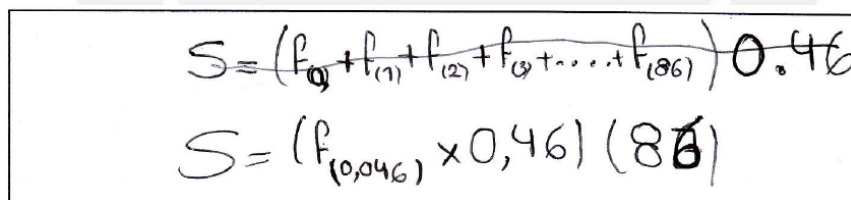 S=(f(0)+f(1)+f(2)+f(3)+....+f(86))0.46
S=(f(0,046)×0,46)(86)